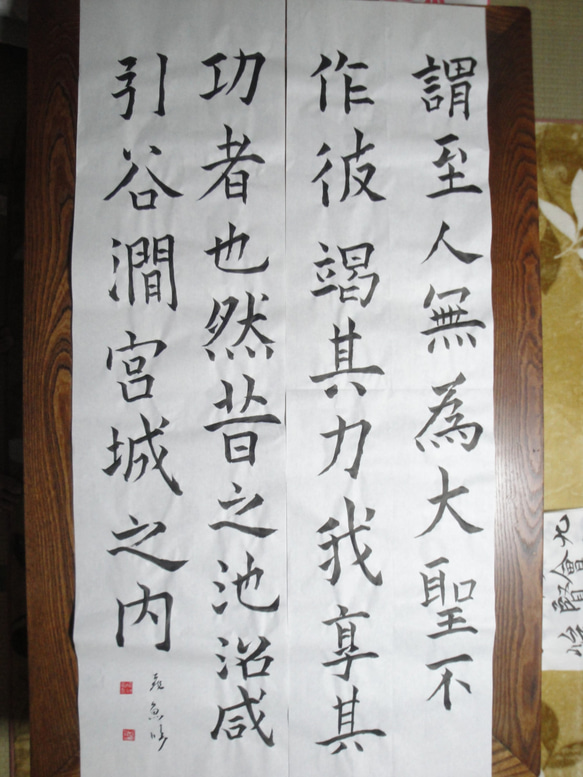 謂至人無為大聖不
作彼竭其力我享其
功者也然昔之池沼咸
引谷澗宮城之内